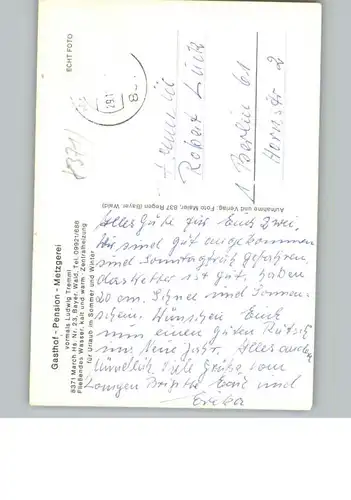 Gasthof - Pension - Metzgerei
vormals Ludwig Treml
8371 March Hs. Nr. 2-3, Bayer. Wald, Tel. 09921/686
Fließendes Wasser, kalt und warm · Zentralheizung
für Urlaub im Sommer und Winter
ECHT FOTO
Aufnahme und Verlag: Foto Maier, 837 Regen (Bayer. Wald)
8371
Familie
Robert Lutz
1 Berlin 61
Hornstr 2
Alles Gute für Euch Zwei.
Wir sind gut angekommen
sind Sonntagfrüh gefahren,
das Wetter ist gut, haben
20 cm. Schnee und Sonnen-
schein. Wünschen Euch
nun einen guten Rutsch
ins Neue Jahr. Alles andere
mündlich viele Grüße vom
Brigitte und
Erika